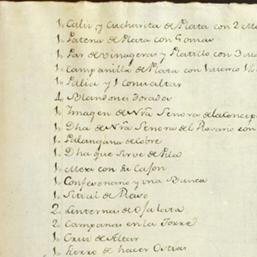 1. Caliz y Cucharita de Plata con 2
1. Patena de Plata con
1. Par de vinageras y Platillo con
1. Campanilla de Plata con
1. Palia y 1 Cornialtar
4. Blandones Dorados
1. Imagen de Nrã Señora dela Concep
1. Dha de Nrã Señora del Rosario con
1. Palangana de Cobre
1. Dha que Sirve de Pila
1. Mesa con Su Cajon
1. Confesonario y una Banca
1. Sitial de Raso
2. Linternas de Oja lata
2. Campanas en la Torre
1. Cruz de Altar
1. Fierro de hacer Ostias